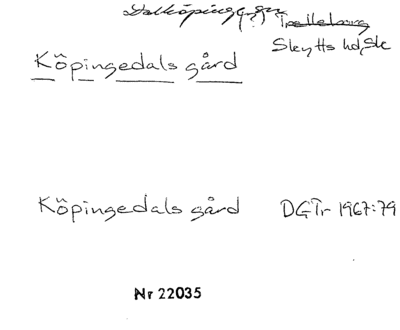 Dalköpinge sn
(?) Trelleborg
Skytts hd, Sk
Köpingedals gård
Köpingedals gård DGTr 1967:79
Nr 22035